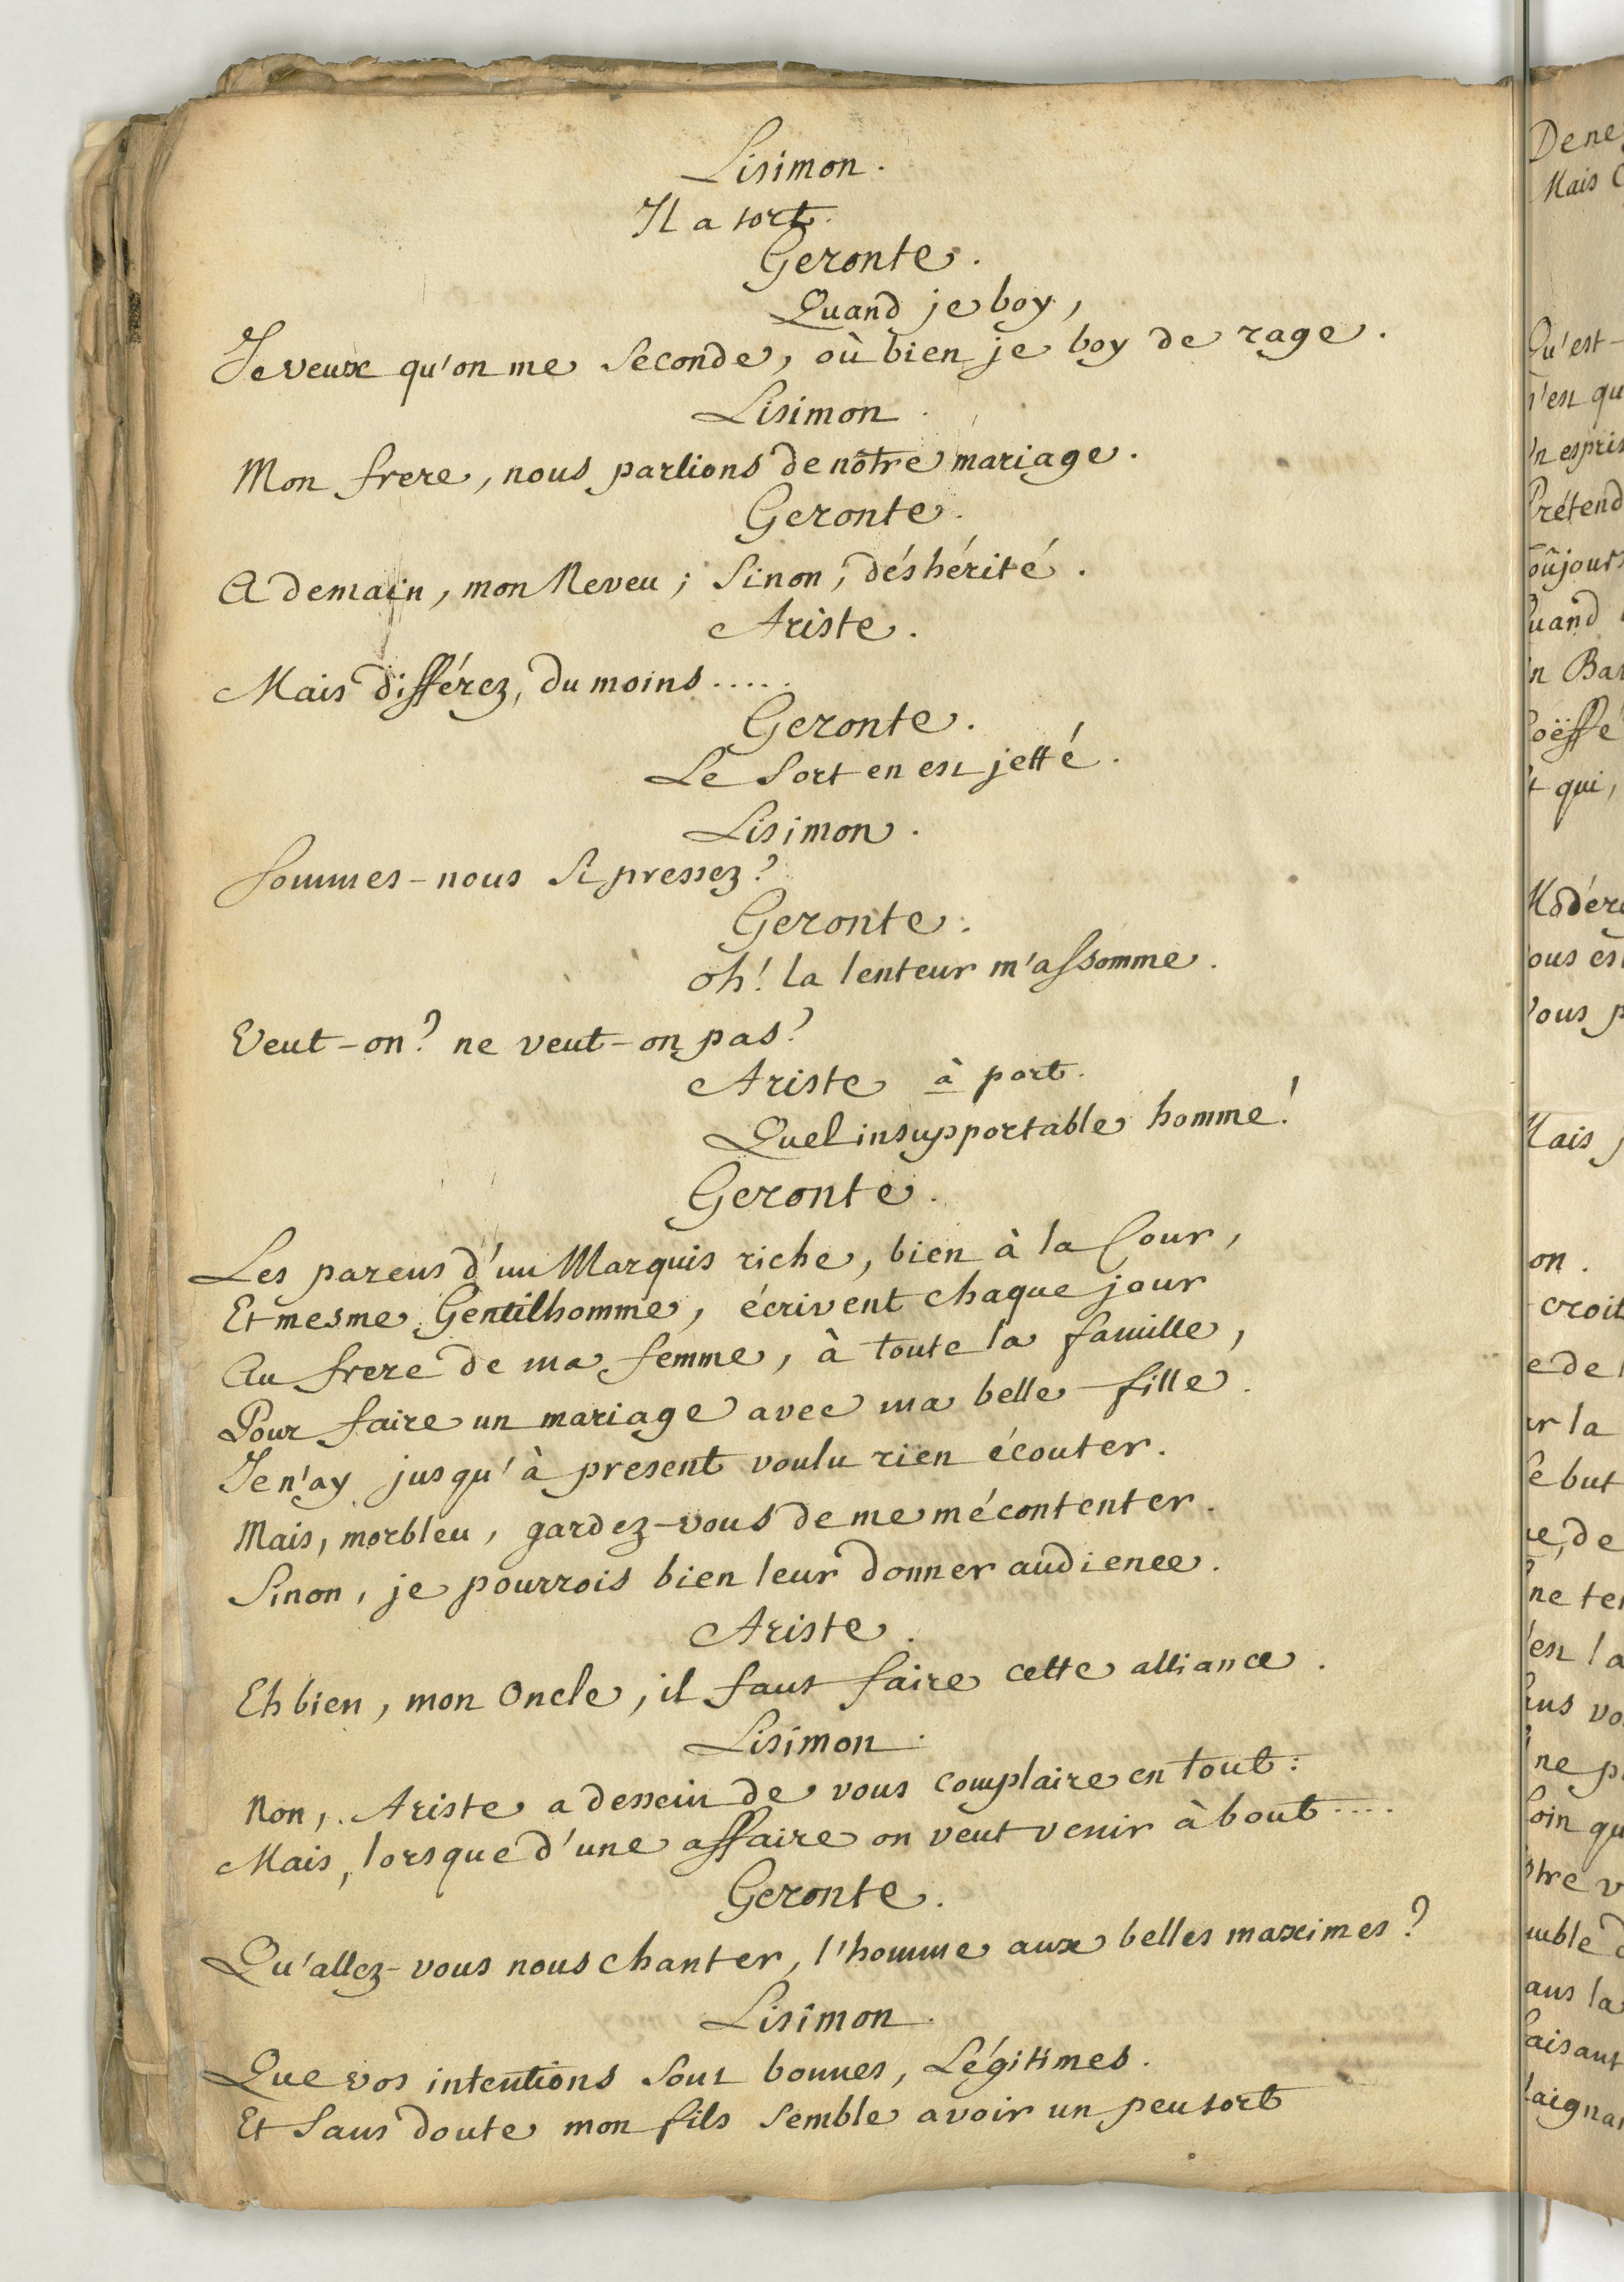 Lisimon.
Il a tort.
Geronte.
Quand je boy,
Je veux qu'on me seconde, où bien je boy de rage.
Lisimon.
Mon frere, nous parlions de nôtre mariage.
Geronte.
A demain, mon Neveu; Sinon, déshérité.
Ariste.
Mais différez, du moins.....
Geronte.
Le Sort en est jetté.
Lisimon.
Sommes-nous si pressez?
Geronte.
oh! la lenteur m'assomme.
Veut-on? ne veut-on pas?
Ariste à part.
Quel insupportable homme!
Geronte.
Les parens d'un Marquis riche, bien à la Cour,
Et mesme Gentilhomme, écrivent chaque jour
Au frere de ma femme, à toute la famille,
Pour faire un mariage avec ma belle-fille.
Je n'ay jusqu'à present voulu rien écouter.
Mais, morbleu, gardez-vous de me mécontenter.
Sinon, je pourrois bien leur donner audience.
Ariste.
Eh bien, mon Oncle, il faut faire cette alliance.
Lisimon.
Non, Ariste a dessein de vous complaire en tout:
Mais, lorsque d'une affaire on veut venir à bout....
Geronte.
Qu'allez-vous nous chanter, l'homme aux belles maximes?
Lisimon.
Que vos intentions sont bonnes, Légitimes.
Et sans doute mon fils semble avoir un peu tort
Mais
Qu'est-
qui,
Mais
on.
croit
la
but
de
la